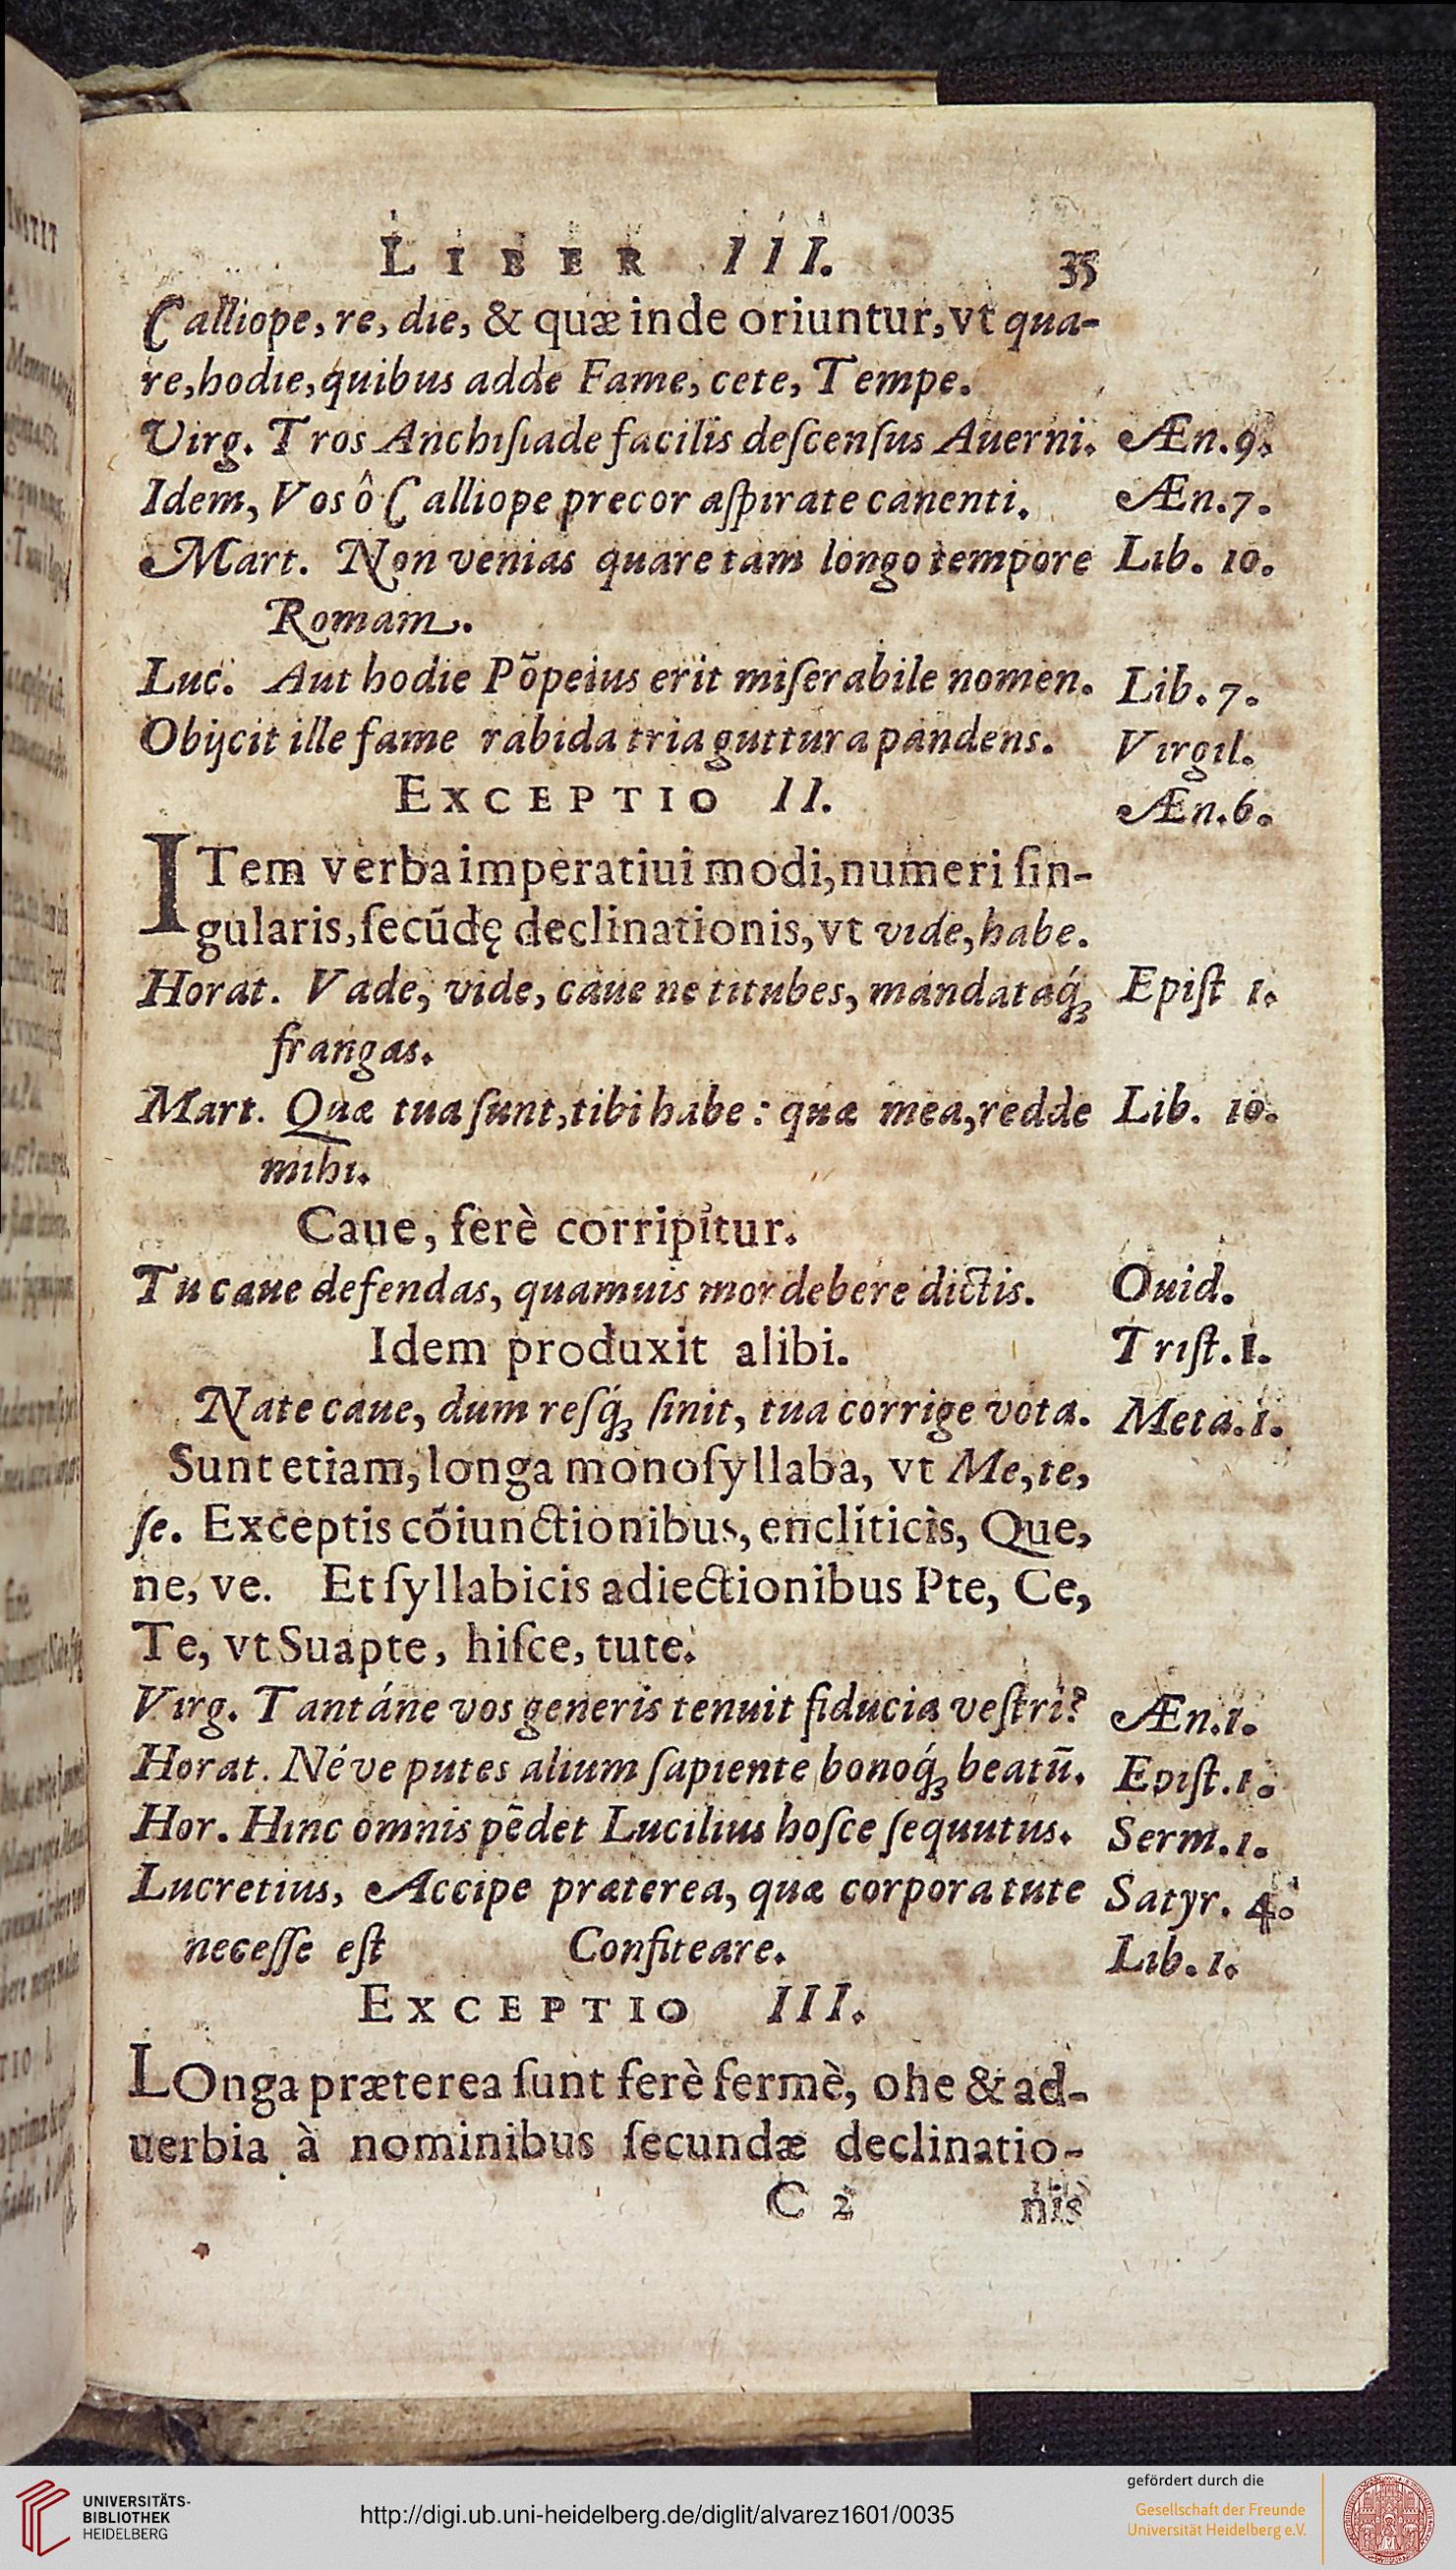 LIBER III. 35
Calliope, re, die, & quæ inde oriuntur, vt qua-
re, hodie, quibus adde Fame, cete, Tempe.
Virg. Tros Anchiſiade facilis deſcenſus Auerni. Æn. 9.
Idem, Vos ô Calliope precor aſpirate canenti. Æn. 7.
Mart. Non venias quare tam longo tempore Lib. 10.
Romam.
Luc. Aut hodie Põpeius erit miſerabile nomen. Lib. 7.
Obijcit ille fame rabida tria guttura pandens. Virgil.
EXCEPTIO II. Æn. 6.
ITem verba imperatiui modi, numeri ſin-
gularis, ſecũdę declinationis, vt vide, habe.
Horat. Vade, vide, caue ne titubes, mandataq́; Epiſt 1.
frangas.
Mart. Quæ tua ſunt, tibi habe: quæ mea, redde Lib. 10.
mihi.
Caue, ferè corripitur.
Tu caue defendas, quamuis mordebere dictis. Ouid.
Idem produxit alibi. Triſt. 1.
Nate caue, dum reſq́; ſinit, tua corrige vota. Meta. 1.
Sunt etiam, longa monoſyllaba, vt Me, te,
ſe. Exceptis cõiunctionibus, encliticis, Que,
ne, ve. Et ſyllabicis adiectionibus Pte, Ce,
Te, vt Suapte, hiſce, tute.
Virg. Tantáne vos generis tenuit fiducia veſtri? Æn. 1.
Horat. Néve putes alium ſapiente bonoq́; beatũ. Epiſt. 1.
Hor. Hinc omnis pẽdet Lucilius hoſce ſequutus. Serm. 1.
Lucretius, Accipe præterea, quæ corpora tute Satyr. 4.
neceſſe eſt Confiteare. Lib. 1.
EXCEPTIO III.
LOnga præterea ſunt ferè fermè, ohe & ad-
uerbia à nominibus ſecundæ declinatio-
C 2 nis
UNIVERSITÄTS-
BIBLIOTHEK
HEIDELBERG
http://digi.ub.uni-heidelberg.de/diglit/alvarez1601/0035
gefördert durch die
Gesellschaft der Freunde
Universität Heidelberg e.V.